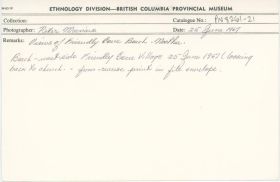 ETHNOLOGY DIVISION—BRITISH COLUMBIA PROVINCIAL MUSEUM
Collection: Catalogue No.: PN8261-21
Photographer: Peter Date: 25 June 1967
Remarks: Views of Friendly Cove Beach - Nootka.
Beach - west side Friendly Cove Village 25 June 1967 (looking
back to church - from print in file envelope.